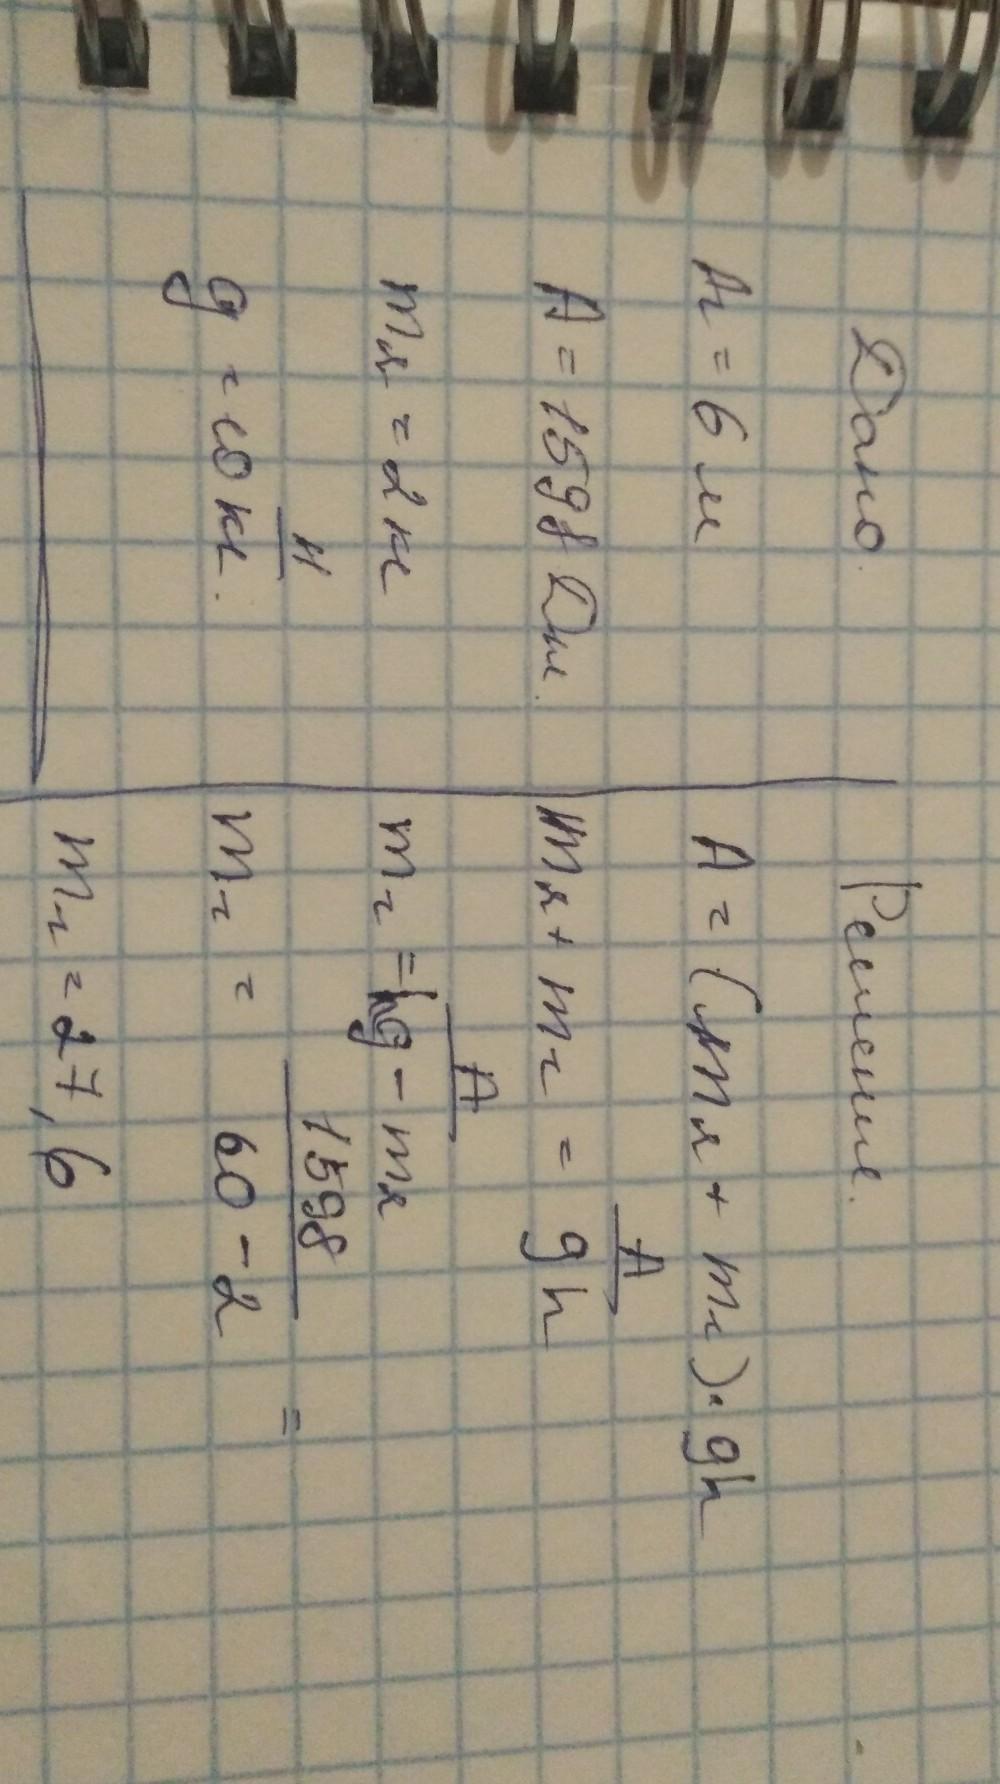 Дано.
h = 6 м
A = 1598 Дж.
mя = 2 кг
g = 10 Н/кг.
Решение.
A = (mя + mг)·gh
mя + mг = A/gh
mг = A/hg - mя
mг = 1598/60 - 2 =
mг = 27,6